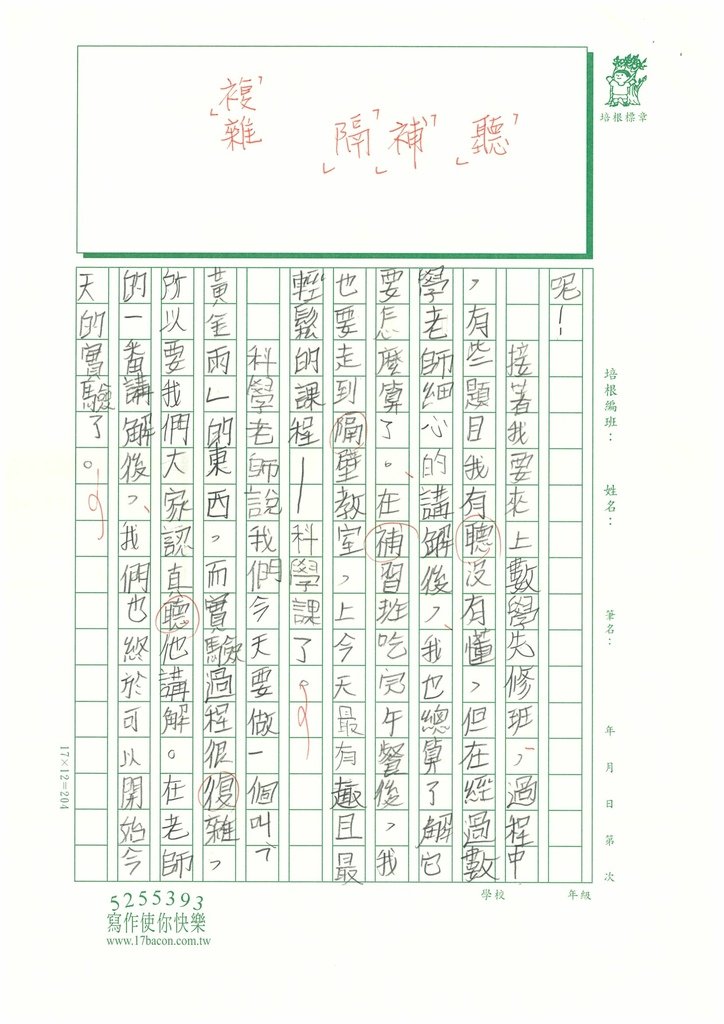 「複雜」
「隔」
「補」
「聽」
培根標章
培根編班：
姓名：
筆名：
年 月 日 第 次
呢！
接著我要來上數學先修班，過程中
，有些題目我有聽沒有懂，但在經過數
學老師細心的講解後，我也總算了解它
要怎麼算了。在補習班吃完午餐後，我
也要走到隔壁教室，上今天最有趣且最
輕鬆的課程—科學課了。
科學老師說我們今天要做一個叫「
黃金雨」的東西，而實驗過程很複雜，
所以要我們大家認真聽他講解。在老師
的一番講解後，我們也終於可以開始今
天的實驗了。
17×12=204
學校
年級
5255393
寫作使你快樂
www.17bacon.com.tw